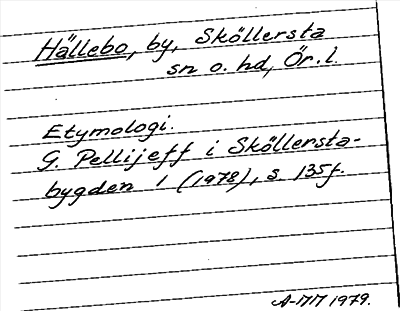 Hällebo, by, Sköllersta
sn o. hd, Ör. l.
Etymologi.
G. Pellijeff i Sköllersta-
bygden 1 (1978), s. 135f.
A-MM 1979.